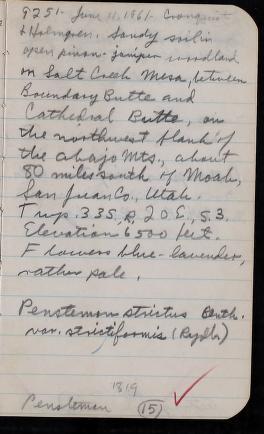 9251. June 11, 1961. Cronquist
& Holmgren. Sandy soil in
open pinon-juniper woodland
on Salt Creek Mesa, between
Boundary Butte and
Cathedral Butte, on
the northwest flank of
the abajo Mts., about
80 miles south of Moab,
San Juan Co., Utah.
Twp. 33S, R. 20E., S.3.
Elevation 6500 feet.
Flowers blue-lavender,
rather pale.
Penstemon strictus Benth.
var. strictiformis (Rydb.)
1819
Penstemon (15)